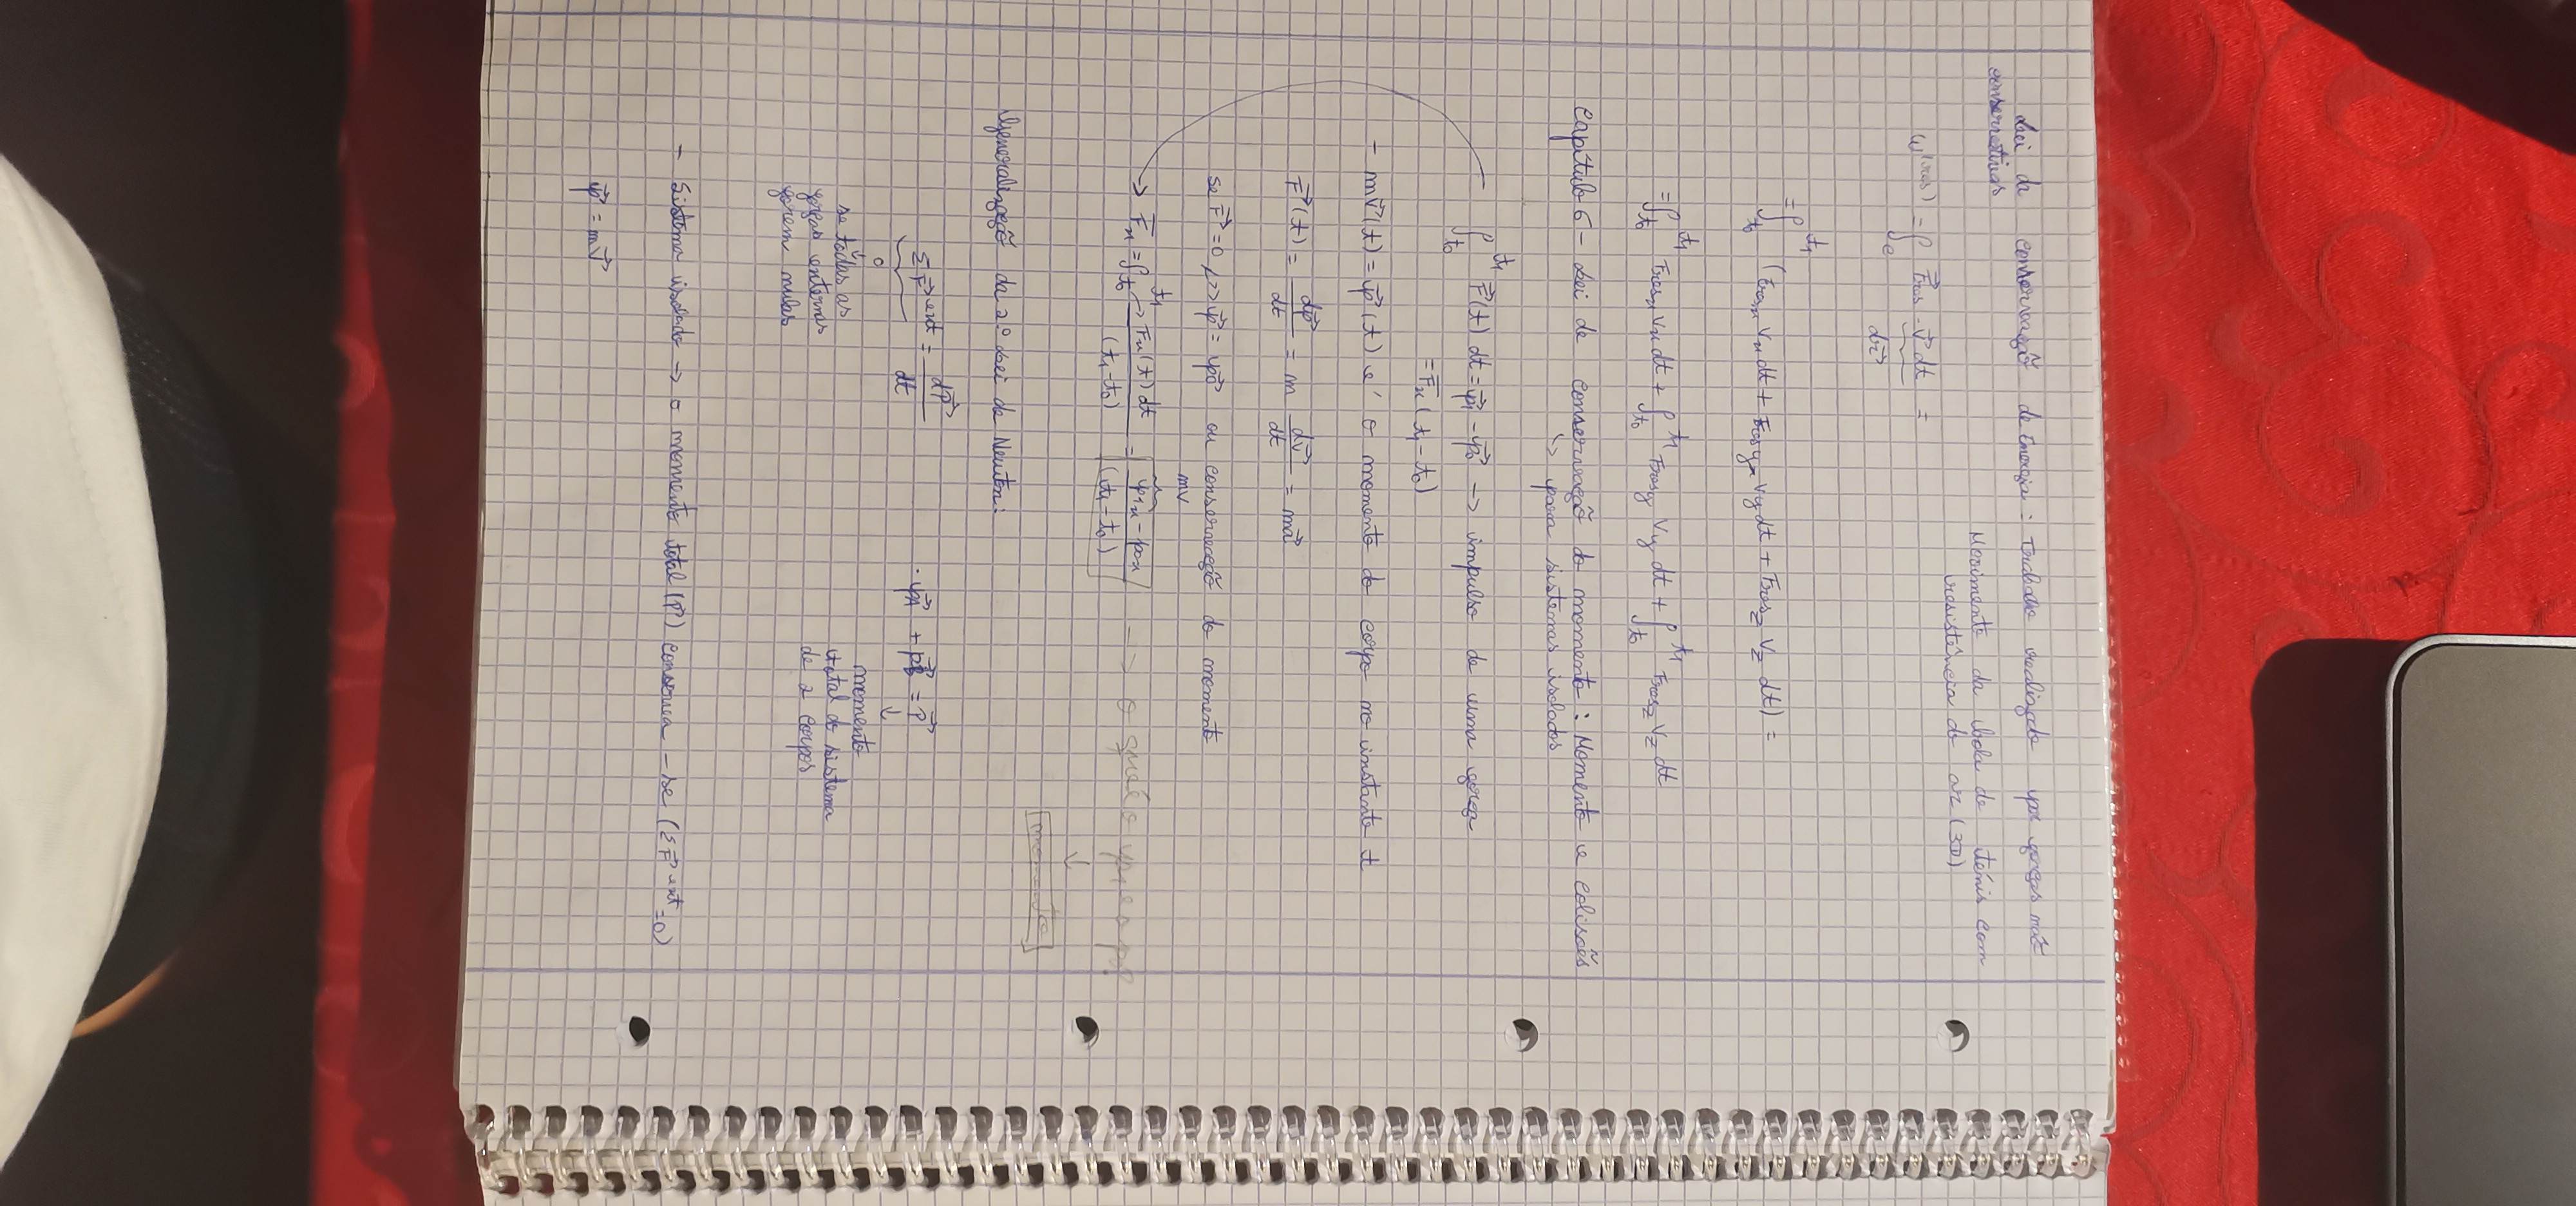 Lei da conservação de Energia: Trabalho realizado por forças não
conservativas
Movimento da bola de ténis com
resistência do ar (3D)
W^(res) = ∫_c F⃗res · v⃗ dt =
dr⃗
= ∫_t0^t1 (Fres_x Vx dt + Fres_y Vy dt + Fres_z Vz dt) =
= ∫_t0^t1 Fres_x Vx dt + ∫_t0^t1 Fres_y Vy dt + ∫_t0^t1 Fres_z Vz dt
Capítulo 6 - Lei de conservação do momento: Momento e colisões
↳ para sistemas isolados
∫_t0^t1 F⃗(t) dt = p⃗1 - p⃗0 → impulso de uma força
= F̅x (t1 - t0)
- mv⃗(t) = p⃗(t) é o momento do corpo no instante t
F⃗(t) = dp⃗/dt = m dv⃗/dt = ma⃗
se F⃗ = 0 >> p⃗ = p⃗0 ou conservação do momento
mv
→ F̅x = ∫_t0^t1 → Fx(t) dt / (t1 - t0) = p1x - p0x / (t1 - t0) → o que é o p1 e o p0?
↓
momento
Generalização da 2º Lei de Newton:
ΣF⃗ ext = dP⃗/dt
· p⃗A + p⃗B = P⃗
0
se todas as
forças externas
forem nulas
momento
total do sistema
de 2 corpos
- Sistema isolado → o momento total (P⃗) conserva-se (ΣF⃗ ext = 0)
p⃗ = mv⃗